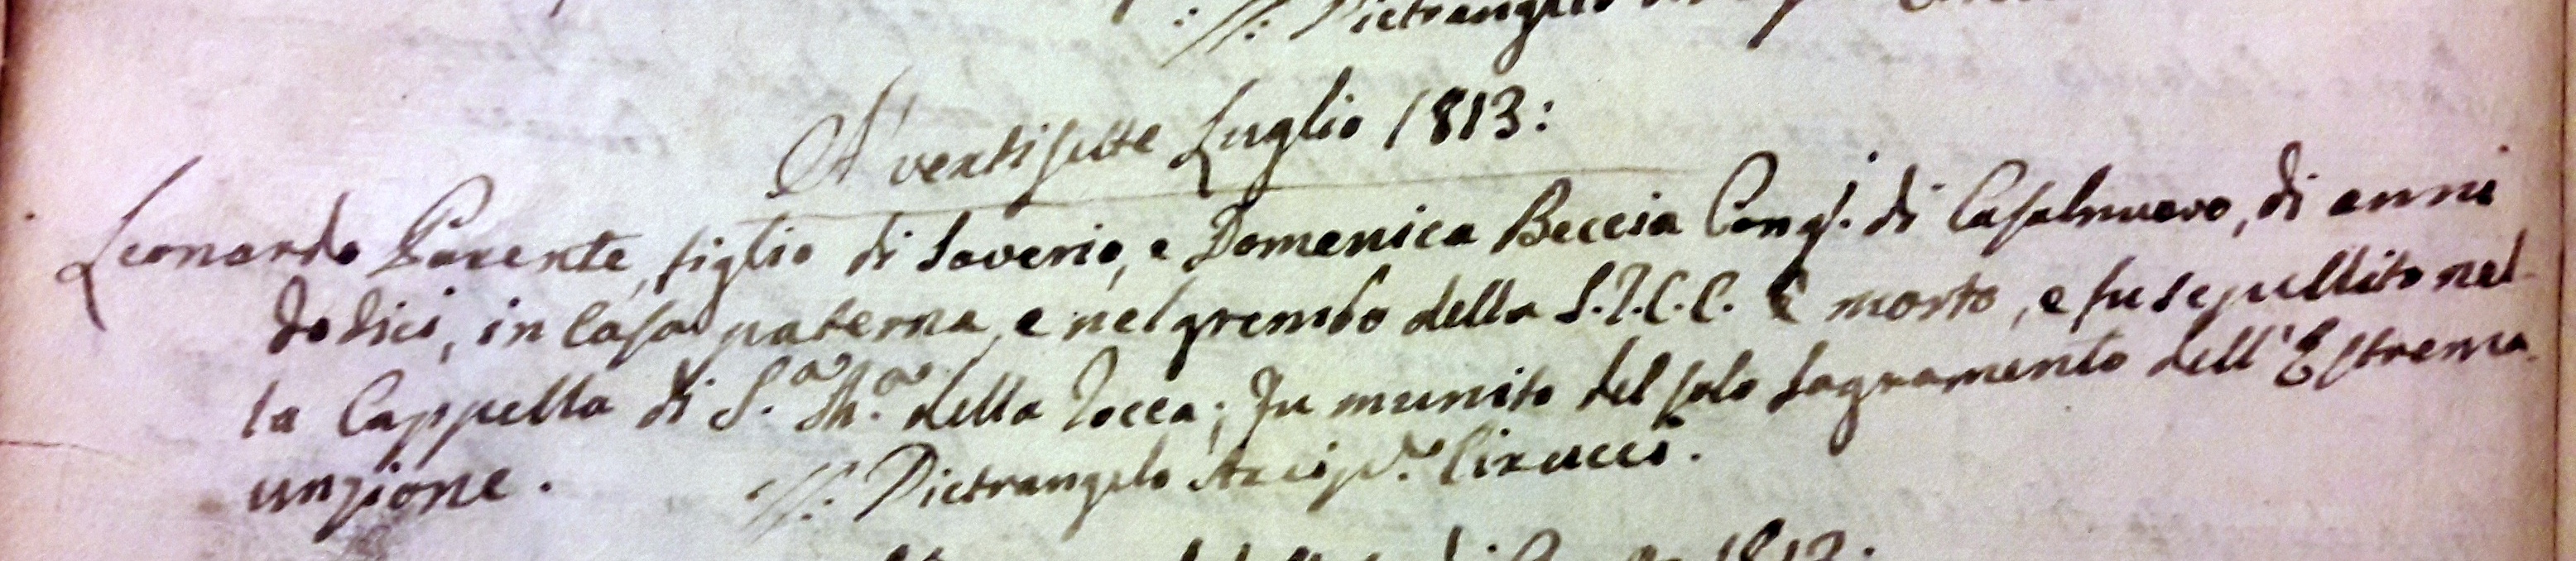 Pietrangelo
A' ventisette Luglio 1813:
Leonardo Parente, figlio di Saverio, e Domenica Beccia Conj. di Casalnuovo, di anni
dodici, in Casa paterna, e nel grembo della S. C. C. È morto, e fu sepullito nel-
la Cappella di S.a M.a della Rocca; fu munito del solo Sagramento dell'Estrema
unzione.
Pietrangelo Arcip.e Cirucci.
1813: